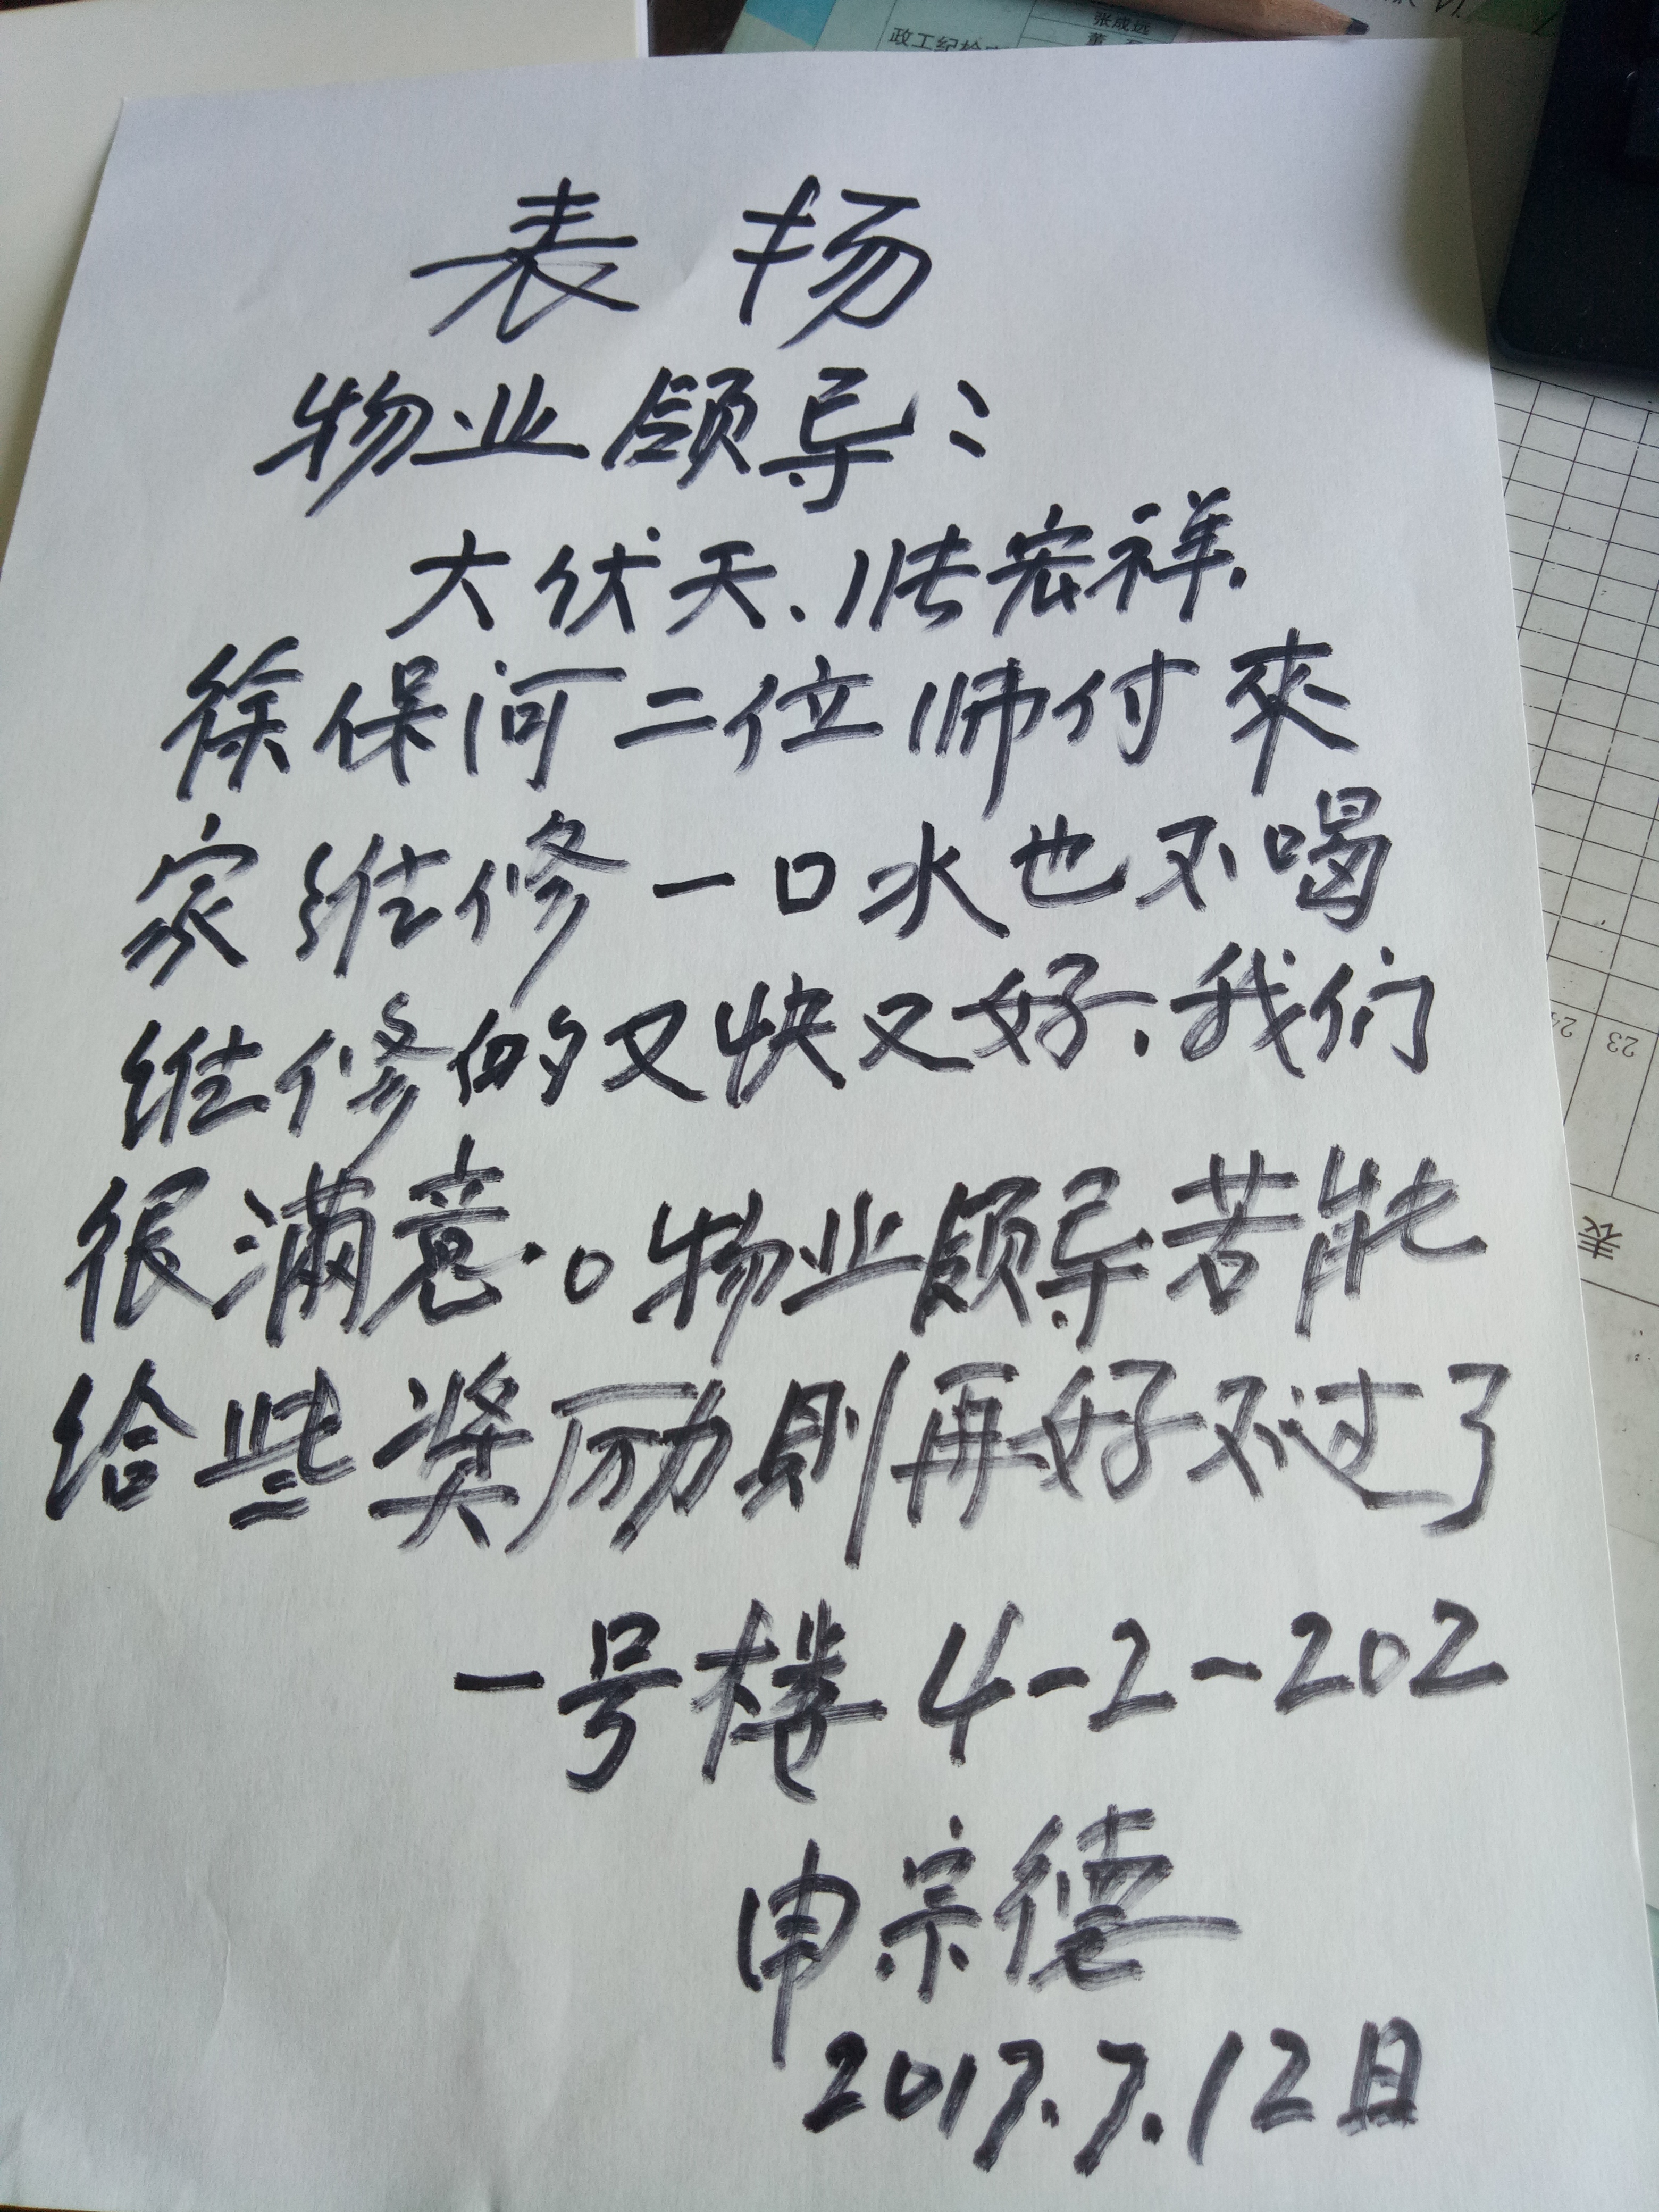 张成远
政工纪检
表扬
物业领导：
大伏天、张宏祥.
徐保河二位师付來
家维修一口水也不喝
维修的又快又好.我们
很满意.。物业领导若能
给些奖励则再好不过了
一号楼4-2-202
申宗德
2017.7.12日
23
表